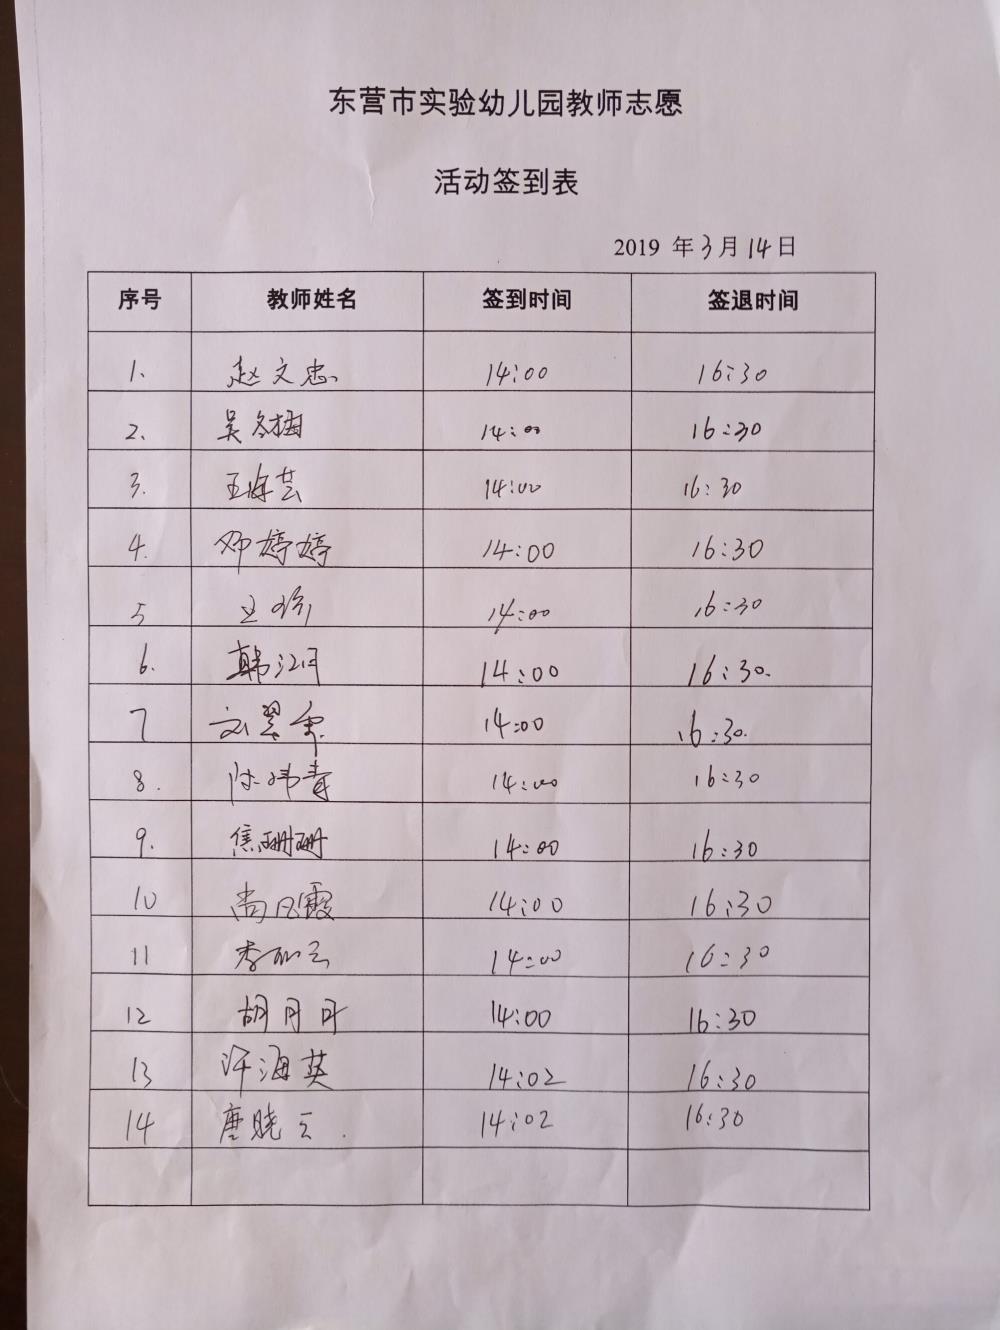 东营市实验幼儿园教师志愿
活动签到表
2019 年 3 月 14 日
序号 教师姓名 签到时间 签退时间
1、 赵文忠 14:00 16:30
2、 吴冬梅 14:00 16:30
3. 王海芸 14:00 16:30
4. 邓婷婷 14:00 16:30
5 王 14:00 16:30
6. 韩江月 14:00 16:30.
7 刘翠 14:00 16:30.
8. 陈玮青 14:00 16:30
9. 焦珊珊 14:00 16:30
10 尚凡霞 14:00 16:30
11 李 云 14:00 16:30
12 胡丹丹 14:00 16:30
13 许海英 14:02 16:30
14 唐晓云. 14:02 16:30